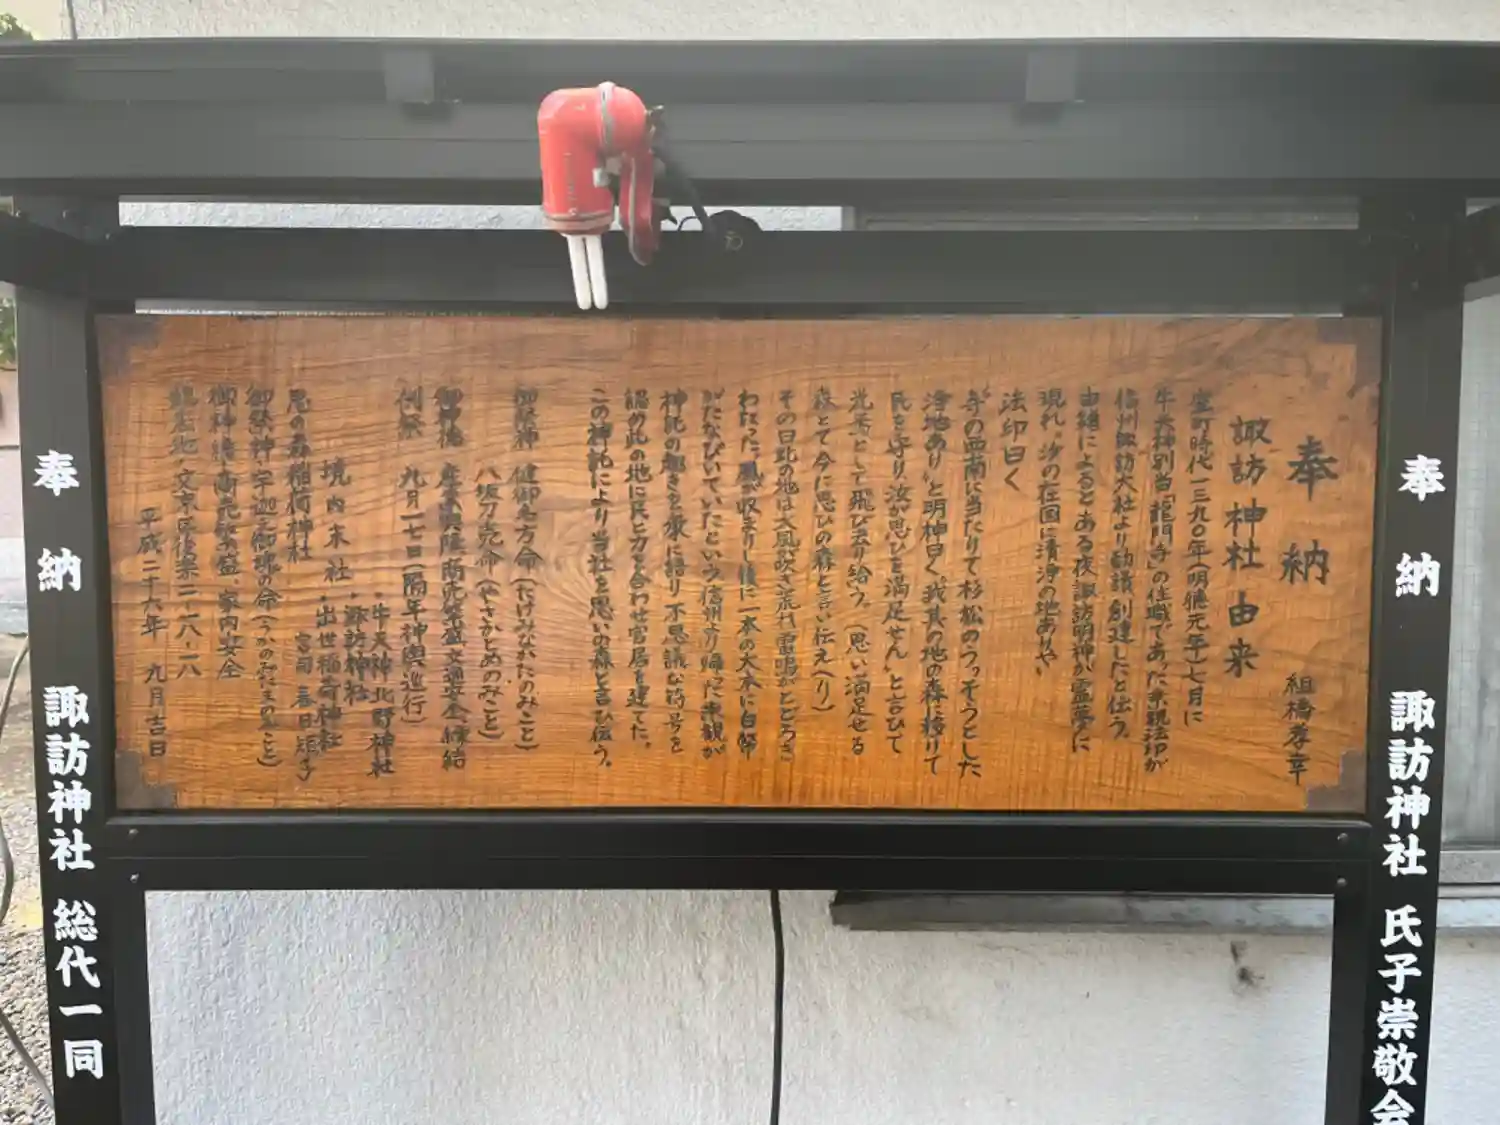 奉納
諏訪神社 氏子崇敬会
奉納
組橋孝幸
諏訪神社由来
室町時代一三九〇年(明徳元年)七月に
牛天神別当「龍門寺」の住職であった東観法印が
信州諏訪大社より勧請、創建したと伝う。
由緒によると、ある夜、諏訪明神が霊夢に
現れ"汝の在国に清浄の地ありや
法印曰く
"寺の西南に当たりて杉松のうっそうとした
浄地あり"と明神曰く"我其の地の森に移りて
民を守り汝が思ひを満足せん"と言ひて
光秀として飛び去り給う。(思い満足せる
森とて今に思ひの森と言い伝えへり)
その日此の地は大風吹き荒れ雷鳴がとどろき
わたった。風が収まりし後に一本の大木に白幣
がたなびいていたという信州より帰った東観が
神託の趣きを衆に語り不思議な符号を
認め此の地に民と力を合わせ宮居を建てた。
この神託により当社を思いの森と言ひ伝う。
御祭神 健御名方命(たけみなかたのみこと)
八坂刀売命(やさかとめのみこと)
御神徳 産業興隆、商売繁盛、交通安全、縁結
例祭 九月二七日(隔年神輿巡行)
境内末社 ・牛天神北野神社
・諏訪神社
・出世稲荷神社
宮司 春日
思の森稲荷神社
御祭神・宇迦之御魂の命(うかのみたまのみこと)
御神徳・商売繁盛、家内安全
鎮座地・文京区後楽二-一八-一八
平成二十六年 九月吉日
奉納
諏訪神社 総代一同